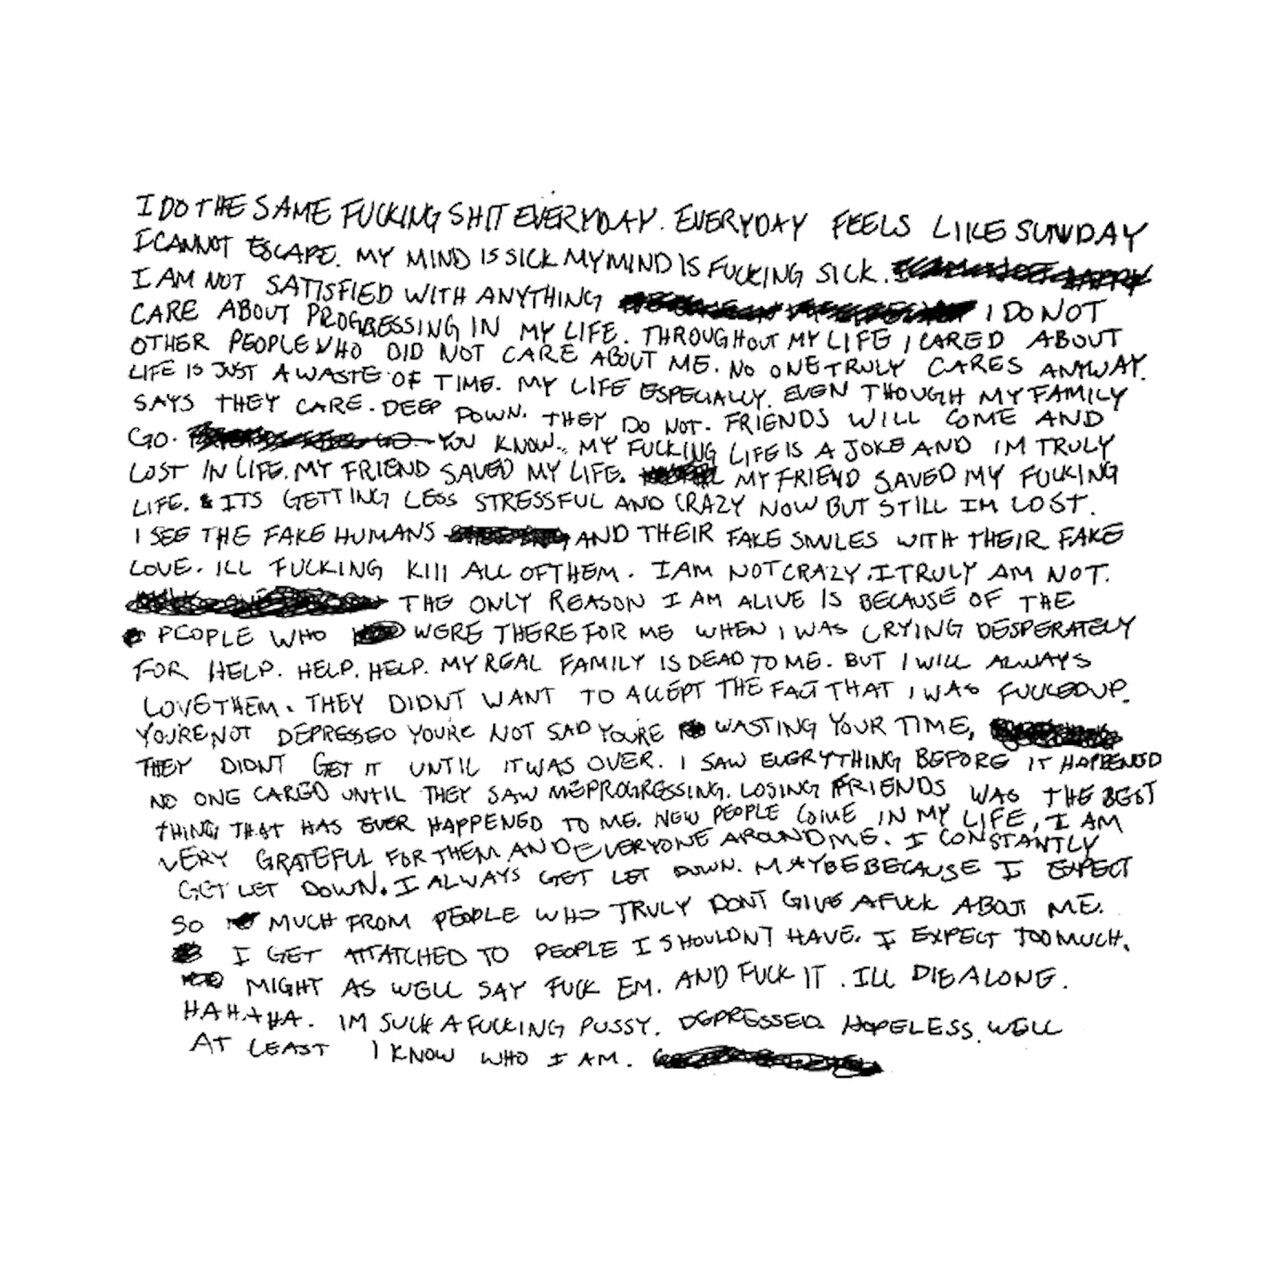 I DO THE SAME FUCKING SHIT EVERYDAY. EVERYDAY FEELS LIKE SUNDAY
I CANNOT ESCAPE. MY MIND IS SICK MY MIND IS FUCKING SICK. I
I AM NOT SATISFIED WITH ANYTHING I DO NOT
CARE ABOUT PROGRESSING IN MY LIFE. THROUGHOUT MY LIFE I CARED ABOUT
OTHER PEOPLE WHO DID NOT CARE ABOUT ME. NO ONE TRULY CARES ANYWAY.
LIFE IS JUST A WASTE OF TIME. MY LIFE ESPECIALLY. EVEN THOUGH MY FAMILY
SAYS THEY CARE. DEEP DOWN. THEY DO NOT. FRIENDS WILL COME AND
GO. YOU KNOW.. MY FUCKING LIFE IS A JOKE AND IM TRULY
LOST IN LIFE. MY FRIEND SAVED MY LIFE. MY FRIEND SAVED MY FUCKING
LIFE. & ITS GETTING LESS STRESSFUL AND CRAZY NOW BUT STILL IM LOST.
I SEE THE FAKE HUMANS AND THEIR FAKE SMILES WITH THEIR FAKE
LOVE. ILL FUCKING KIll ALL OF THEM. I AM NOT CRAZY. I TRULY AM NOT.
THE ONLY REASON I AM ALIVE IS BECAUSE OF THE
PEOPLE WHO WERE THERE FOR ME WHEN I WAS CRYING DESPERATELY
FOR HELP. HELP. HELP. MY REAL FAMILY IS DEAD TO ME. BUT I WILL ALWAYS
LOVE THEM. THEY DIDNT WANT TO ACCEPT THE FACT THAT I WAS FUCKED UP.
YOU'RE NOT DEPRESSED YOU'RE NOT SAD YOU'RE WASTING YOUR TIME,
THEY DIDNT GET IT UNTIL IT WAS OVER. I SAW EVERYTHING BEFORE IT HAPPENED
NO ONE CARED UNTIL THEY SAW ME PROGRESSING. LOSING FRIENDS WAS THE BEST
THING THAT HAS EVER HAPPENED TO ME. NEW PEOPLE COME IN MY LIFE, I AM
VERY GRATEFUL FOR THEM AND EVERYONE AROUND ME. I CONSTANTLY
GET LET DOWN. I ALWAYS GET LET DOWN. MAYBE BECAUSE I EXPECT
SO MUCH FROM PEOPLE WHO TRULY DONT GIVE A FUCK ABOUT ME.
I GET ATTATCHED TO PEOPLE I SHOULDNT HAVE. I EXPECT TOO MUCH.
MIGHT AS WELL SAY FUCK EM. AND FUCK IT. ILL DIE ALONE.
HAHAHA. IM SUCH A FUCKING PUSSY. DEPRESSED. HOPELESS. WELL
AT LEAST I KNOW WHO I AM.